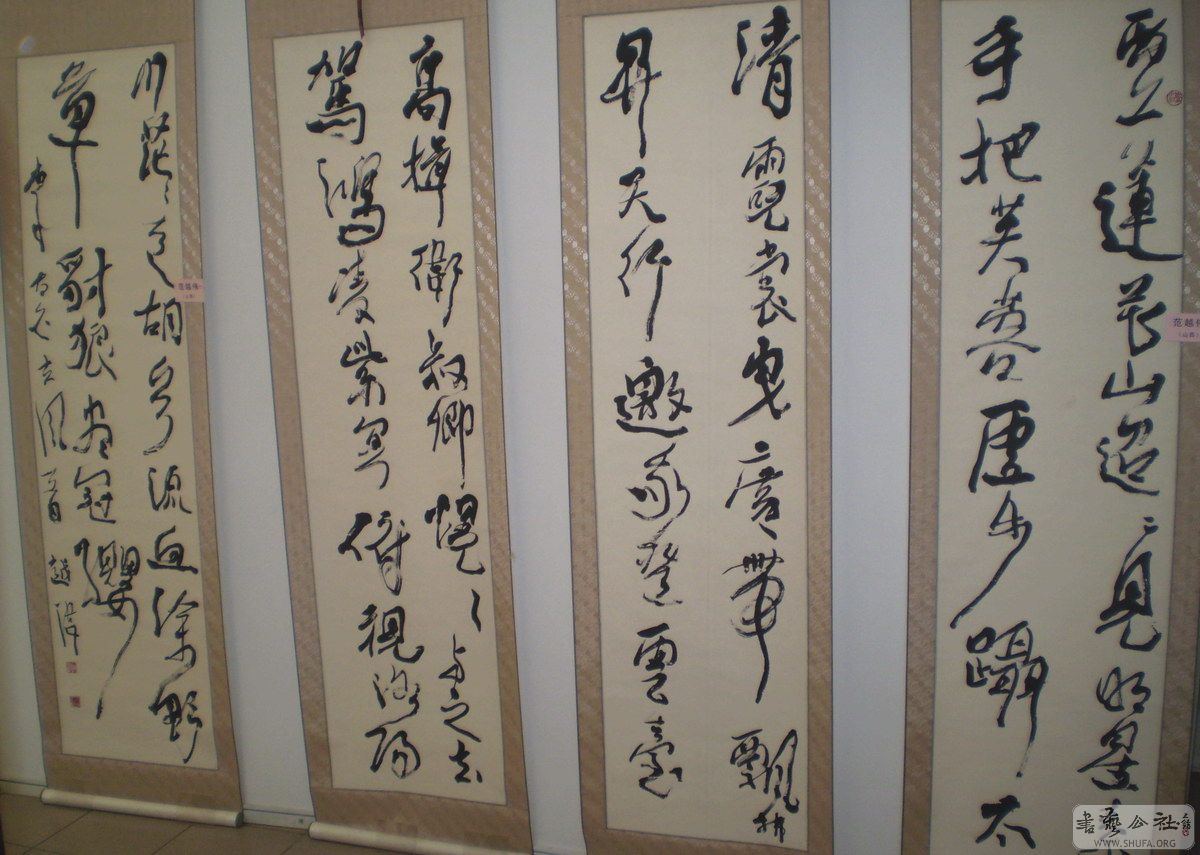 西上蓮花山迢〻見明星素
手把芙蓉虛步躡太
清霓裳曳廣帶飄拂
昇天行邀我登雲臺
高揖衛叔卿愰〻與之去
駕鴻凌紫冥俯視洛陽
川茫〻走胡兵流血塗野
草豺狼盡冠纓
古風一首 越偉
范越伟
(山西)
范越伟
(山西)
書藝公社
WWW.SHUFA.ORG